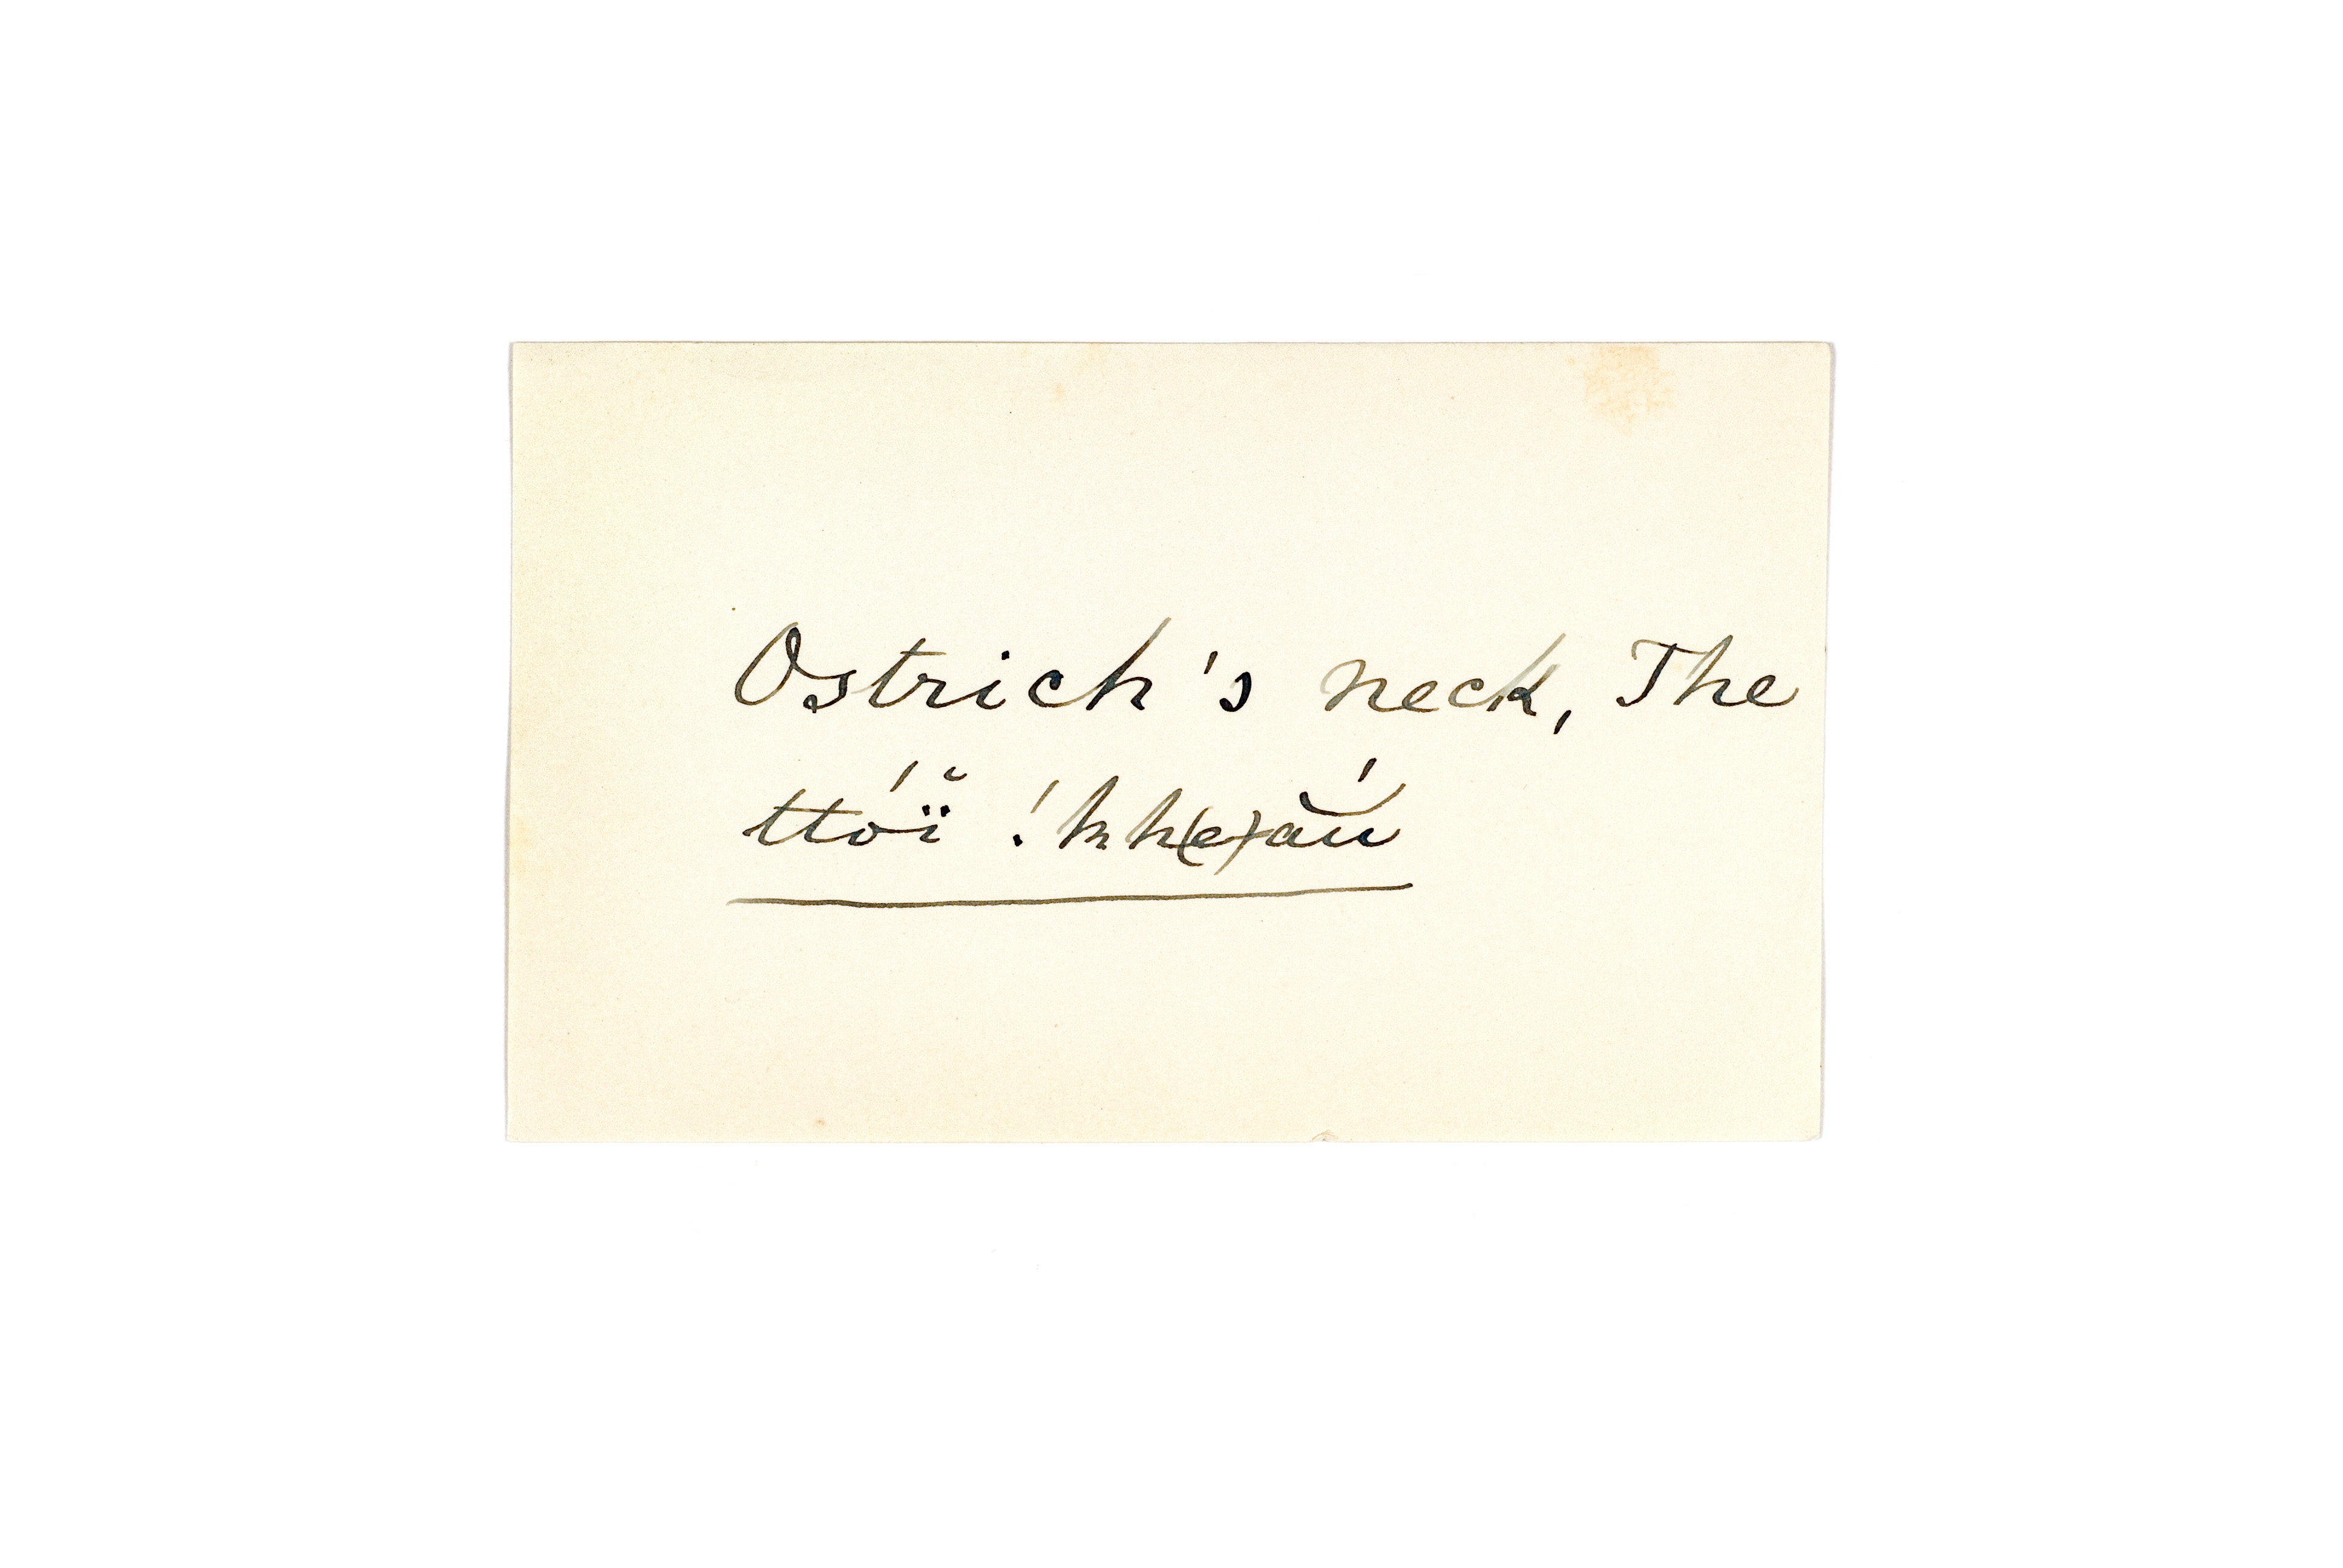 Ostrich's neck, The
ttóĭ̈ !kh(e)ăŭ́